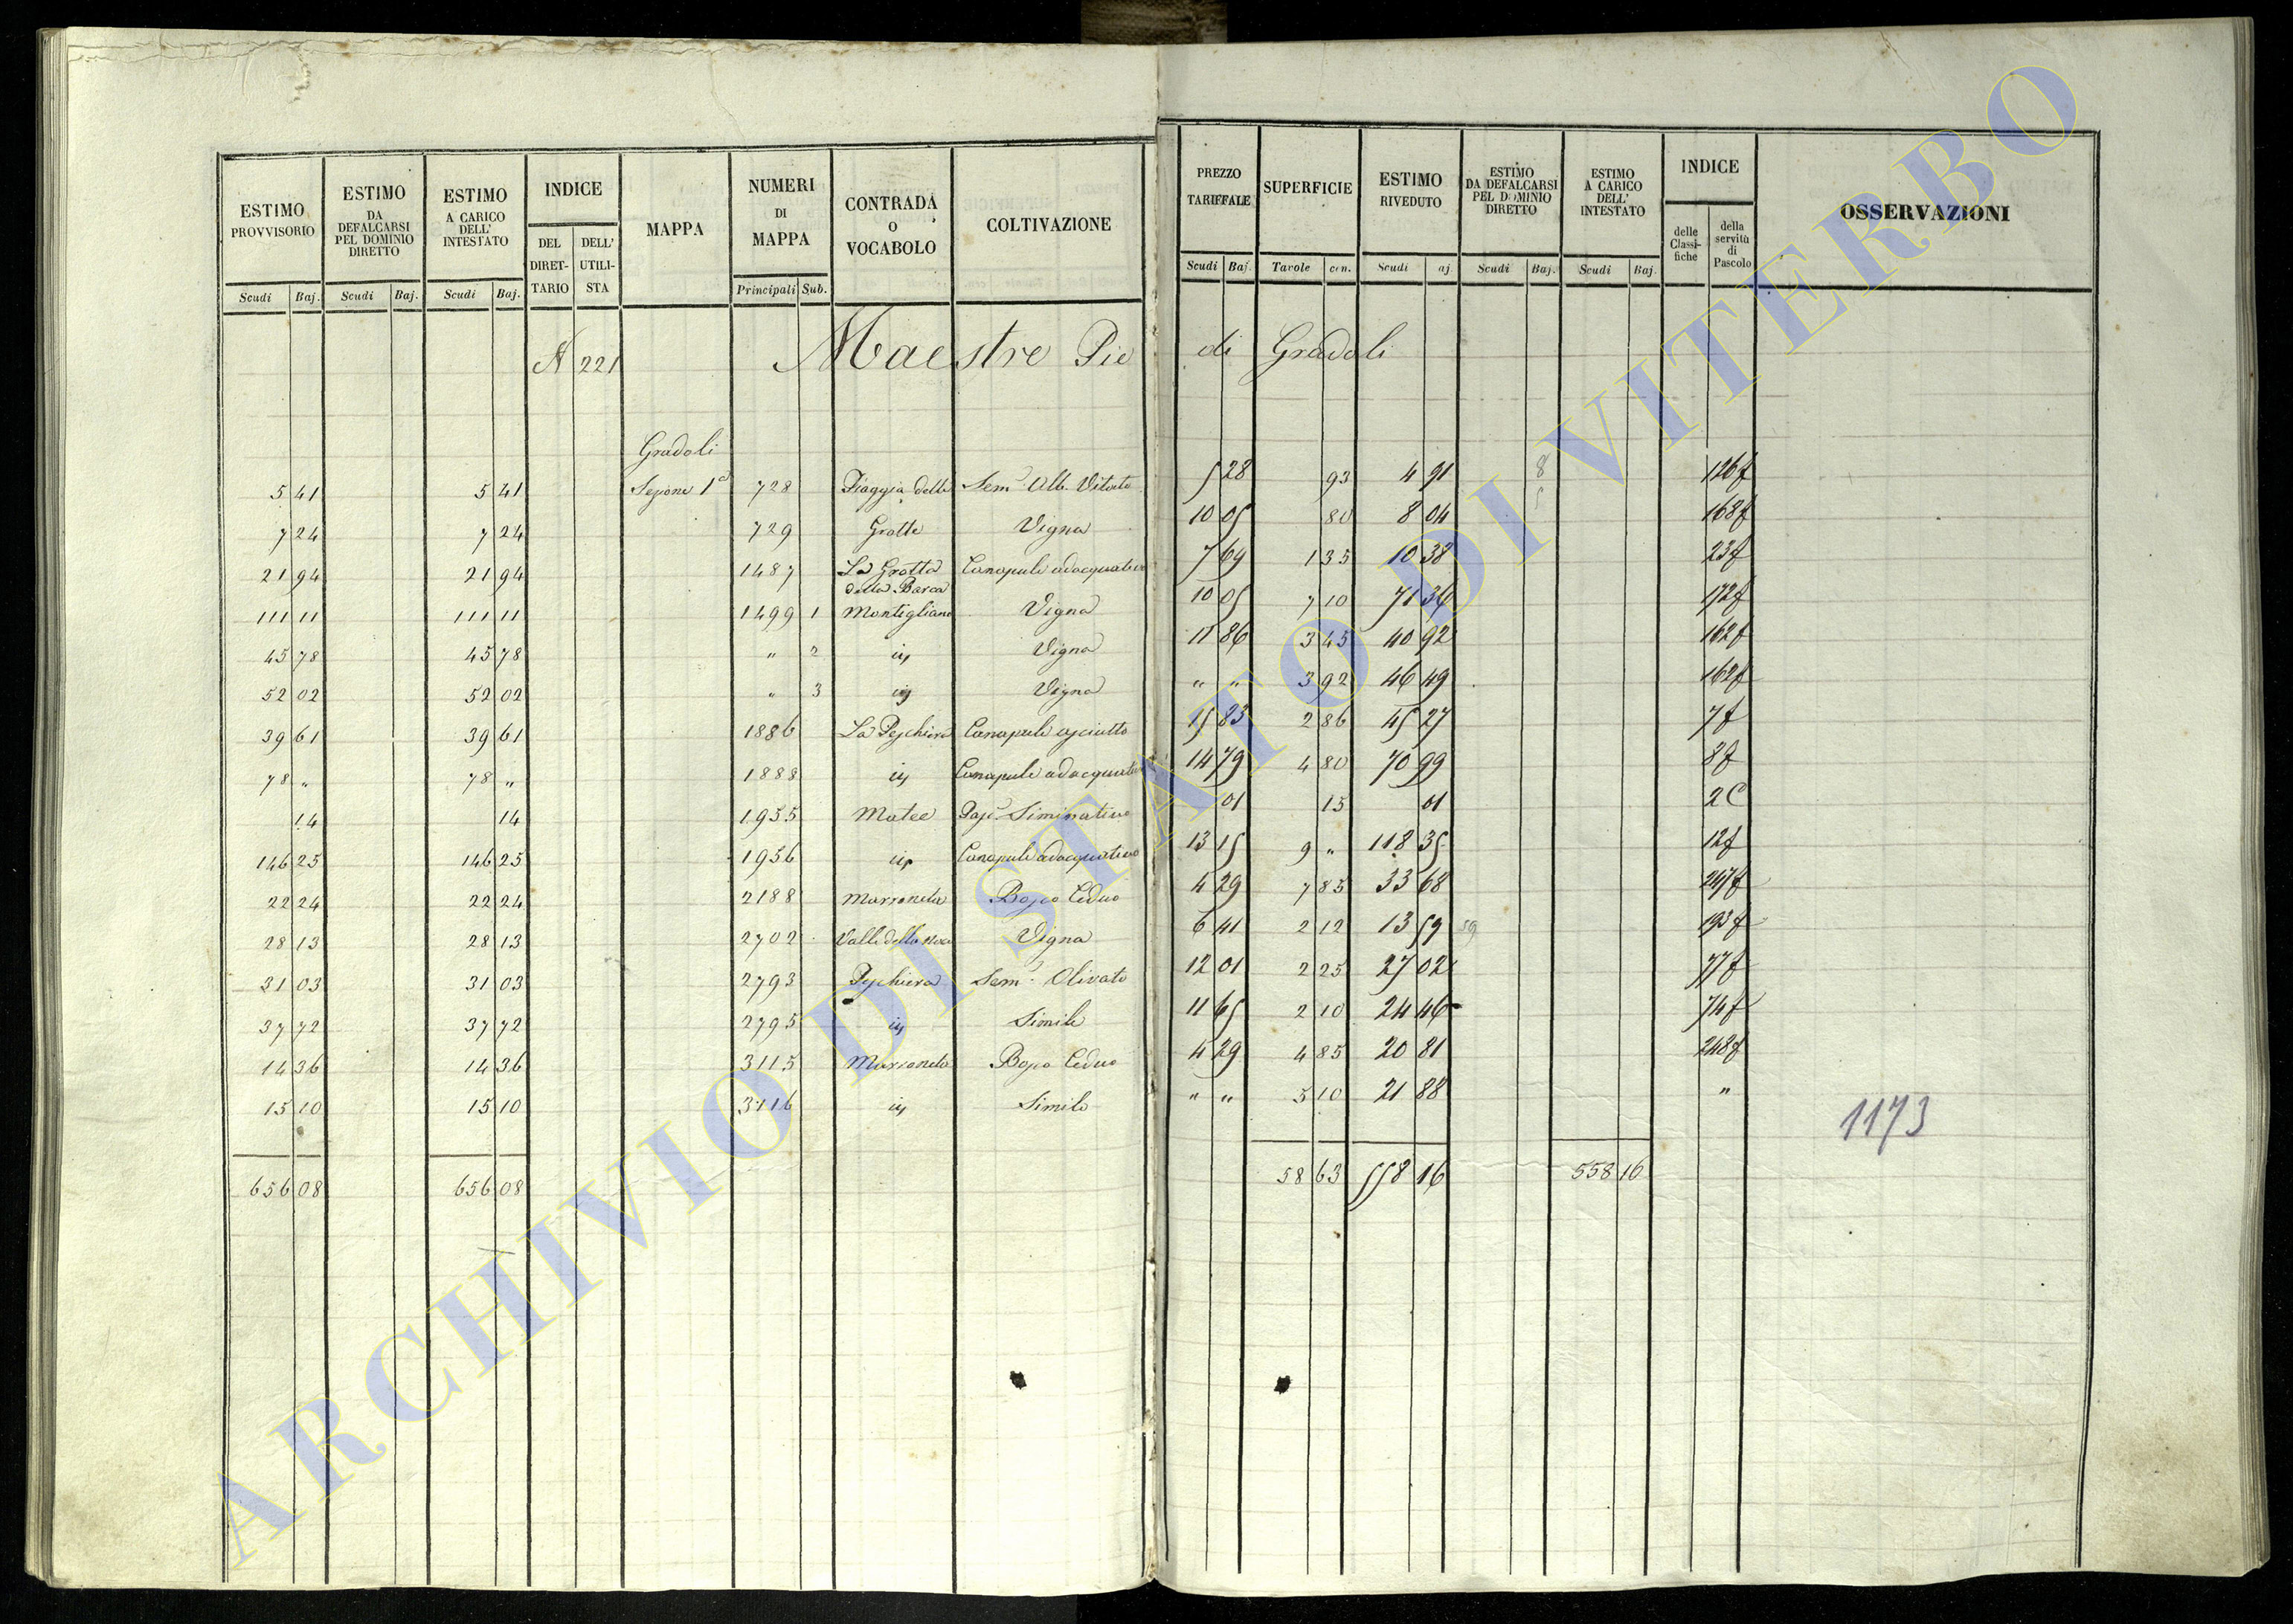 ESTIMO PROVVISORIO | ESTIMO DA DEFALCARSI PEL DOMINIO DIRETTO | ESTIMO A CARICO DELL' INTESTATO | INDICE | MAPPA | NUMERI DI MAPPA | CONTRADA O VOCABOLO | COLTIVAZIONE | PREZZO TARIFFALE | SUPERFICIE | ESTIMO RIVEDUTO | ESTIMO DA DEFALCARSI PEL DOMINIO DIRETTO | ESTIMO A CARICO DELL' INTESTATO | INDICE | OSSERVAZIONI
DEL DIRETTARIO | DELL' UTILISTA | delle Classifiche | della servitù di Pascolo
Scudi | Baj. | Scudi | Baj. | Scudi | Baj. | Principali | Sub. | Scudi | Baj. | Tavole | cen. | Scudi | aj. | Scudi | Baj. | Scudi | Baj.
N 221 Maestre Pie di Gradoli
Gradoli
5 41 | 5 41 | Sezione 1a | 728 | Piaggia delle | Sem.o Alb. Vitato | 5 28 | 93 | 4 91 | 8 | 126f
5
7 24 | 7 24 | 729 | Grotte | Vigna | 10 05 | 80 | 8 04 | 168f
21 94 | 21 94 | 1487 | La Grotta della Barca | Canapule adacquativo | 7 69 | 1 35 | 10 38 | 23f
111 11 | 111 11 | 1499 | 1 | Montigliano | Vigna | 10 05 | 7 10 | 71 36 | 172f
45 78 | 45 78 | " | 2 | ivi | Vigna | 11 86 | 3 45 | 40 92 | 162f
52 02 | 52 02 | " | 3 | ivi | Vigna | " " | 3 92 | 46 49 | 162f
39 61 | 39 61 | 1886 | La Peschiera | Canapule asciutto | 15 83 | 2 86 | 45 27 | 7f
78 " | 78 " | 1888 | ivi | Canapule adacquativo | 14 79 | 4 80 | 70 99 | 8f
14 | 14 | 1955 | Matee | Pas.o Siminativo | 01 | 15 | 01 | 2C
146 25 | 146 25 | 1956 | ivi | Canapule adacquativo | 13 15 | 9 " | 118 35 | 12f
22 24 | 22 24 | 2188 | Marroneta | Bosco Ceduo | 4 29 | 7 85 | 33 68 | 247f
28 13 | 28 13 | 2702 | Valle della | Vigna | 6 41 | 2 12 | 13 59 | 59 | 193f
31 03 | 31 03 | 2793 | Peschiera | Sem.o Olivato | 12 01 | 2 25 | 27 02 | 77f
37 72 | 37 72 | 2795 | ivi | Simile | 11 65 | 2 10 | 24 46 | 74f
14 36 | 14 36 | 3115 | Marroneta | Bosco Ceduo | 4 29 | 4 85 | 20 81 | 248f
15 10 | 15 10 | 3116 | ivi | Simile | " " | 5 10 | 21 88 | "
1173
656 08 | 656 08 | 58 63 | 558 16 | 558 16
ARCHIVIO DI STATO DI VITERBO